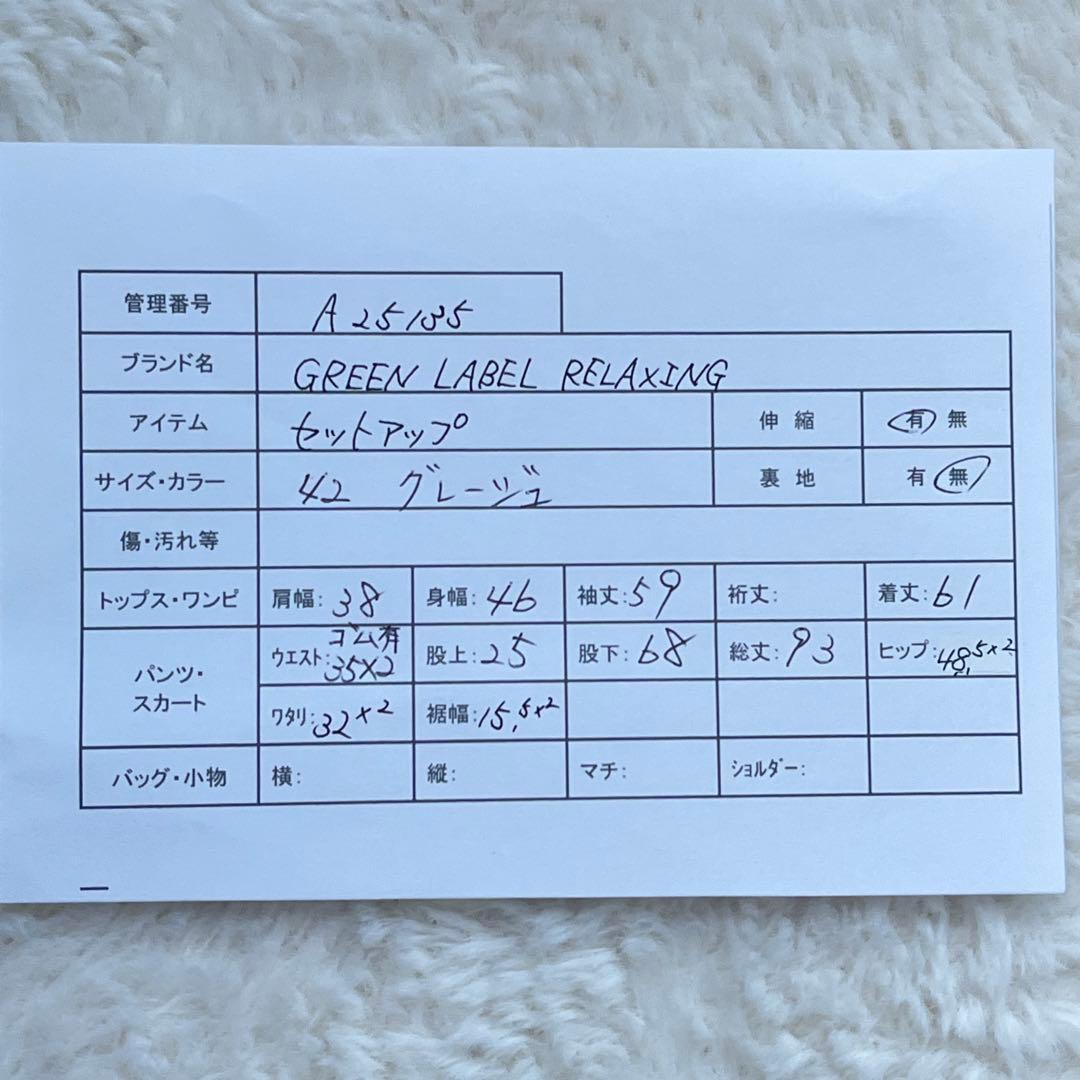 管理番号 A25135
ブランド名 GREEN LABEL RELAXING
アイテム セットアップ 伸縮 有 無
サイズ・カラー 42 グレージュ 裏地 有 無
傷・汚れ等
トップス・ワンピ 肩幅: 38 身幅: 46 袖丈: 59 裄丈: 着丈: 61
パンツ・スカート ウエスト: ゴム有 35×2 股上: 25 股下: 68 総丈: 93 ヒップ: 48.5×2
ワタリ: 32×2 裾幅: 15.5×2
バッグ・小物 横: 縦: マチ: ショルダー: